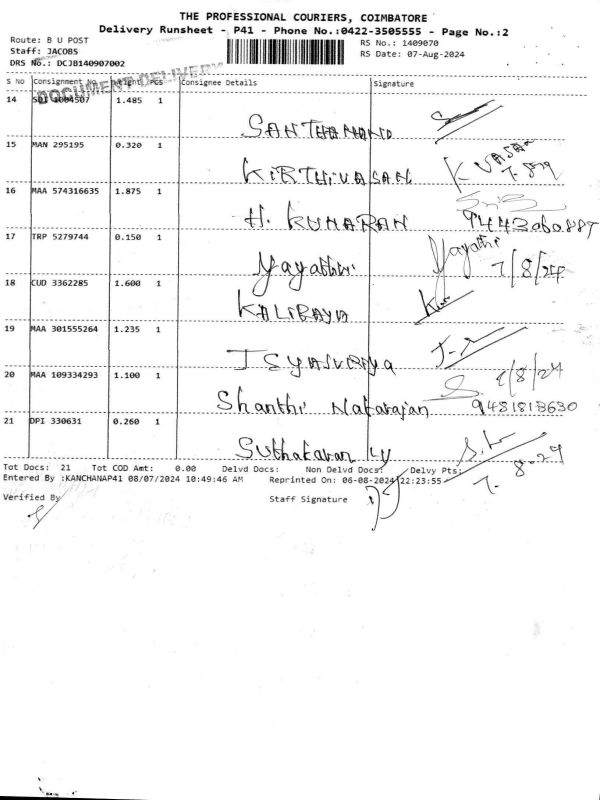 THE PROFESSIONAL COURIERS, COIMBATORE
Delivery Runsheet - P41 - Phone No.:0422-3505555 - Page No.:2
Route: B U POST
RS No.: 1409070
Staff: JACOBS
RS Date: 07-Aug-2024
DRS No.: DCJB140907002
DOCUMENT DELIVERY
S No Consignment No Weight Pcs Consignee Details Signature
14 1004507 1.485 1
SANTHANAND
15 MAN 295195 0.320 1
KIRTHIVASAN
16 MAA 574316635 1.875 1
H. KUMARAN 9443060887
17 TRP 5279744 0.150 1
Yayathi Yayathi
7/8/24
18 CUD 3362285 1.600 1
KALIRAYA
19 MAA 301555264 1.235 1
JEYASURYA
20 MAA 109334293 1.100 1
Shanthi Natarajan 9481818630
21 DPI 330631 0.260 1
Suthakaran
Tot Docs: 21 Tot COD Amt: 0.00 Delvd Docs: Non Delvd Docs: Delvy Pts:
Entered By :KANCHANAP41 08/07/2024 10:49:46 AM Reprinted On: 06-08-2024 22:23:55
Verified By Staff Signature